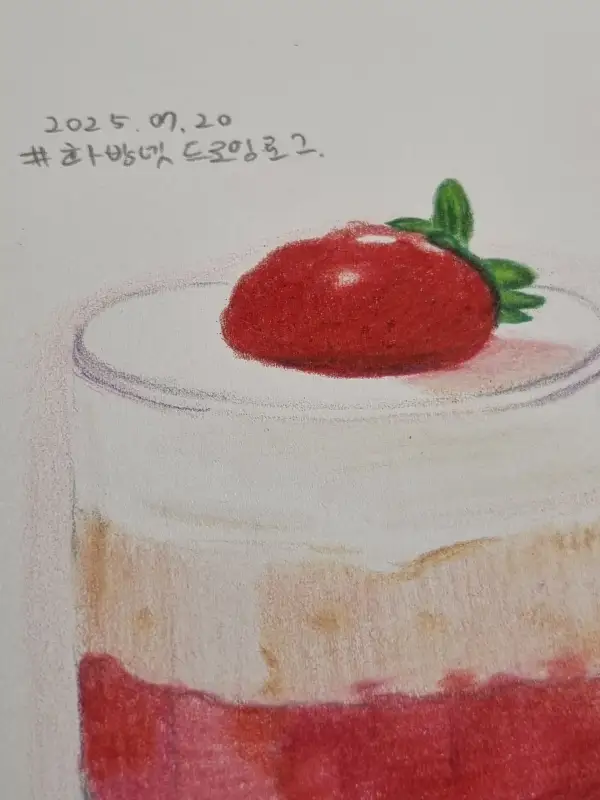 2025.07.20
#화방넷 드로잉로그.